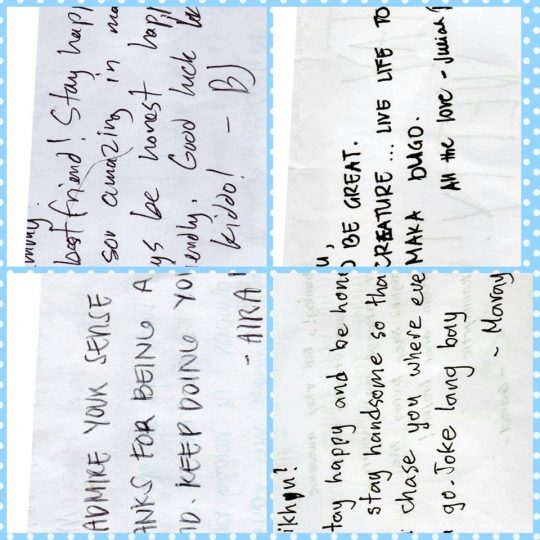 mmy!
bestfriend! Stay hap
son amazing in ma
ys be honest hap
endly. Good luck
kiddo! - BJ
u,
O BE GREAT.
CREATURE ... LIVE LIFE TO
MAKA DUGO.
All the love - Juciah
ADMIRE YOUR SENSE
ANKS FOR BEING A
ID. KEEP DOING YO
- AIRA
ikhyn!
tay happy and be hon
stay handsome so tha
chase you where eve
go. Joke lang bay
~ Maray